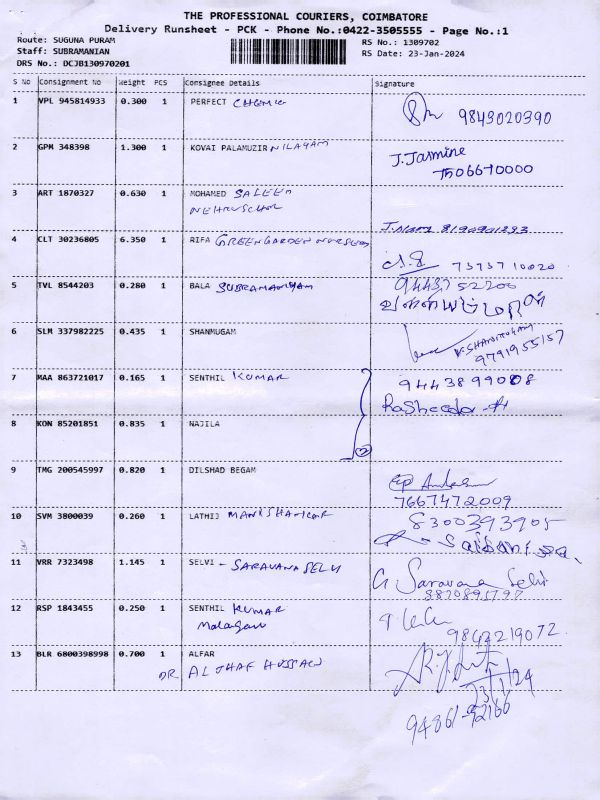 THE PROFESSIONAL COURIERS, COIMBATORE
Delivery Runsheet - PCK - Phone No.:0422-3505555 - Page No.:1
Route: SUGUNA PURAM
RS No.: 1309702
Staff: SUBRAMANIAN
RS Date: 23-Jan-2024
DRS No.: DCJB130970201
S No Consignment No Weight PCS Consignee Details Signature
1 VPL 945814933 0.300 1 PERFECT CHEMIC
9843020390
2 GPM 348398 1.300 1 KOVAI PALAMUZIR NILAYAM
J. Jasmine
7506670000
3 ART 1870327 0.630 1 MOHAMED SALEEM
8190901293
4 CLT 30236805 6.350 1 RIFA GREEN GARDEN
7373710020
5 TVL 8544203 0.280 1 BALA SUBRAMANIYAM
9443752200
6 SLM 337982225 0.435 1 SHANMUGAM
K. SHANMUGAM
9791955157
7 MAA 863721017 0.165 1 SENTHIL KUMAR
9443899008
8 KON 85201851 0.835 1 NAJILA
9 TMG 200545997 0.820 1 DILSHAD BEGAM
7667472009
10 SVM 3800039 0.260 1 LATHIJ
8300393905
11 VRR 7323498 1.145 1 SELVI - SARAVANA SELVI
G Saravana Selvi
8870895797
12 RSP 1843455 0.250 1 SENTHIL KUMAR
9843219072
13 BLR 6800398998 0.700 1 ALFAR
DR. AL JHAF HUSSAIN
23/1/24
94861-92166